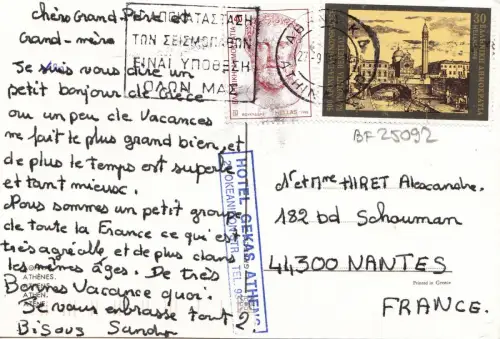 chers Grand-Père et
Grand-mère
Je suis vous dire un
petit bonjour de Grèce
ou un peu de Vacances
me fait le plus grand bien, et
de plus le temps est superbe
et tant mieux.
Nous sommes un petit groupe
de toute la France ce qui est
très agréable et de plus dans
les mêmes âges. De très
Bonnes Vacance quoi.
Je vous enbrasse tout 2
Bisous Sandra
ATHÈNES.
ATHENS.
ATHEN.
ΑΠΟΚΑΤΑΣΤΑΣΗ
ΤΩΝ ΣΕΙΣΜΟΠΑΘΩΝ
ΕΙΝΑΙ ΥΠΟΘΕΣΗ
ΟΛΩΝ ΜΑΣ
HELLAS
30
ΕΛΛΗΝΙΚΗ ΔΗΜΟΚΡΑΤΙΑ
BF 25092
HOTEL GEKAS ATHENS
TEL.
Mr et Mme HIRET Alexandre.
182 bd Schouman
44300 NANTES
Printed in Greece
FRANCE.